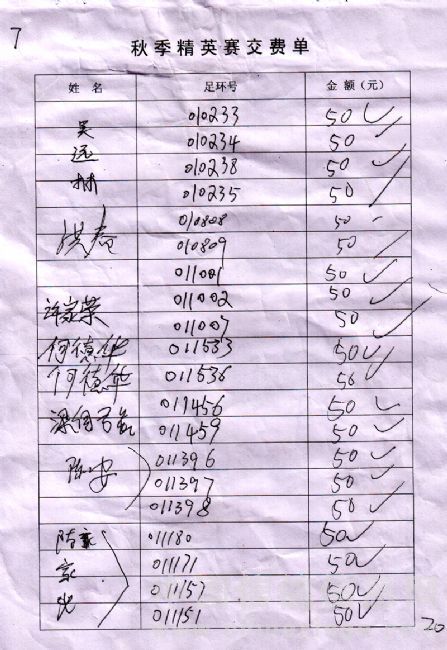 7
秋季精英赛交费单
姓 名 足环号 金 额(元)
吴 010233 50
远 010234 50
010238 50
林 010235 50
洪春 010808 50
010809 50
011001 50
许家荣 011002 50
011007 50
何德华 011533 50
何德华 011536 50
011456 50
011459 50
陈安 011396 50
011397 50
011398 50
011180 50
家 011171 50
011157 50
011151 50
20